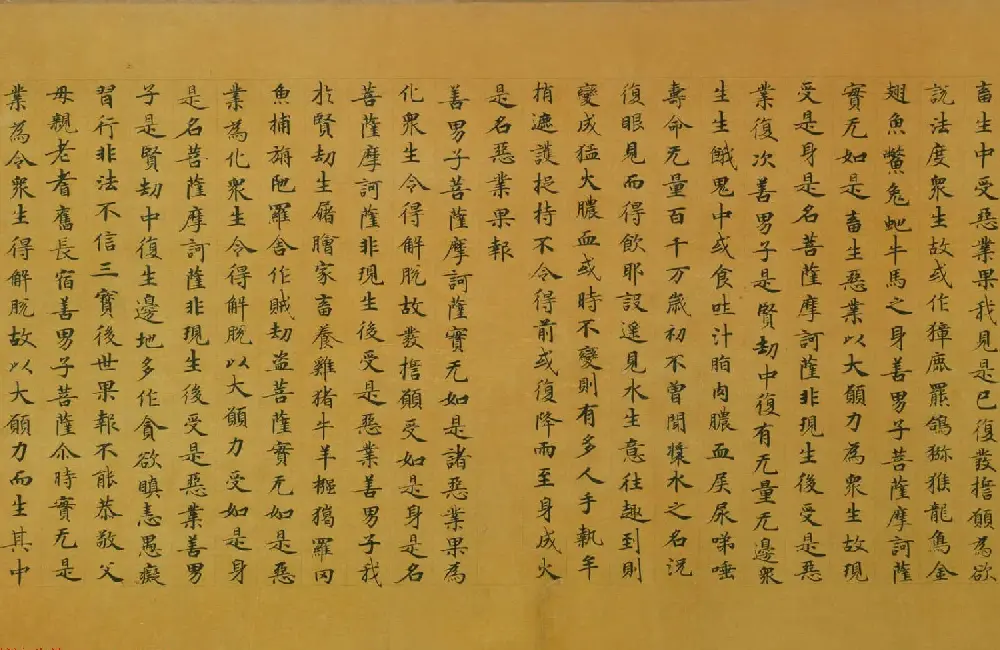 畜生中受惡業果我見是已復發擔願為欲
説法度衆生故或作獐鹿羆鴿猕猴龍鳥金
翅魚鱉兔虵牛馬之身善男子菩薩摩訶薩
實无如是畜生惡業以大願力為衆生故現
受是身是名菩薩摩訶薩非現生後受是惡
業復次善男子是賢劫中復有无量无邊衆
生生餓鬼中或食吐汁脂肉膿血屎尿唾
壽命无量百千万歳初不曾聞漿水之名況
復眼見而得飲耶設遥見水生意往趣到則
變成猛火膿血或時不變則有多人手執牟
矟遮護捉持不令得前或復降雨至身成火
是名惡業果報
善男子菩薩摩訶薩實无如是諸惡業果為
化衆生令得解脱故發擔願受如是身是名
菩薩摩訶薩非現生後受是惡業善男子我
扵賢劫生屠膾家畜養雞猪牛羊羅冈
魚捕旃陁羅舎作賊劫盗菩薩實无如是惡
業為化衆生令得解脱以大願力受如是身
是名菩薩摩訶薩非現生後受是惡業善男
子是賢劫中復生邊地多作貪欲瞋恚愚癡
習行非法不信三寳後世果報不能恭敬父
母親老耆舊長宿善男子菩薩尒時實无是
業為令衆生得解脱故以大願力而生其中